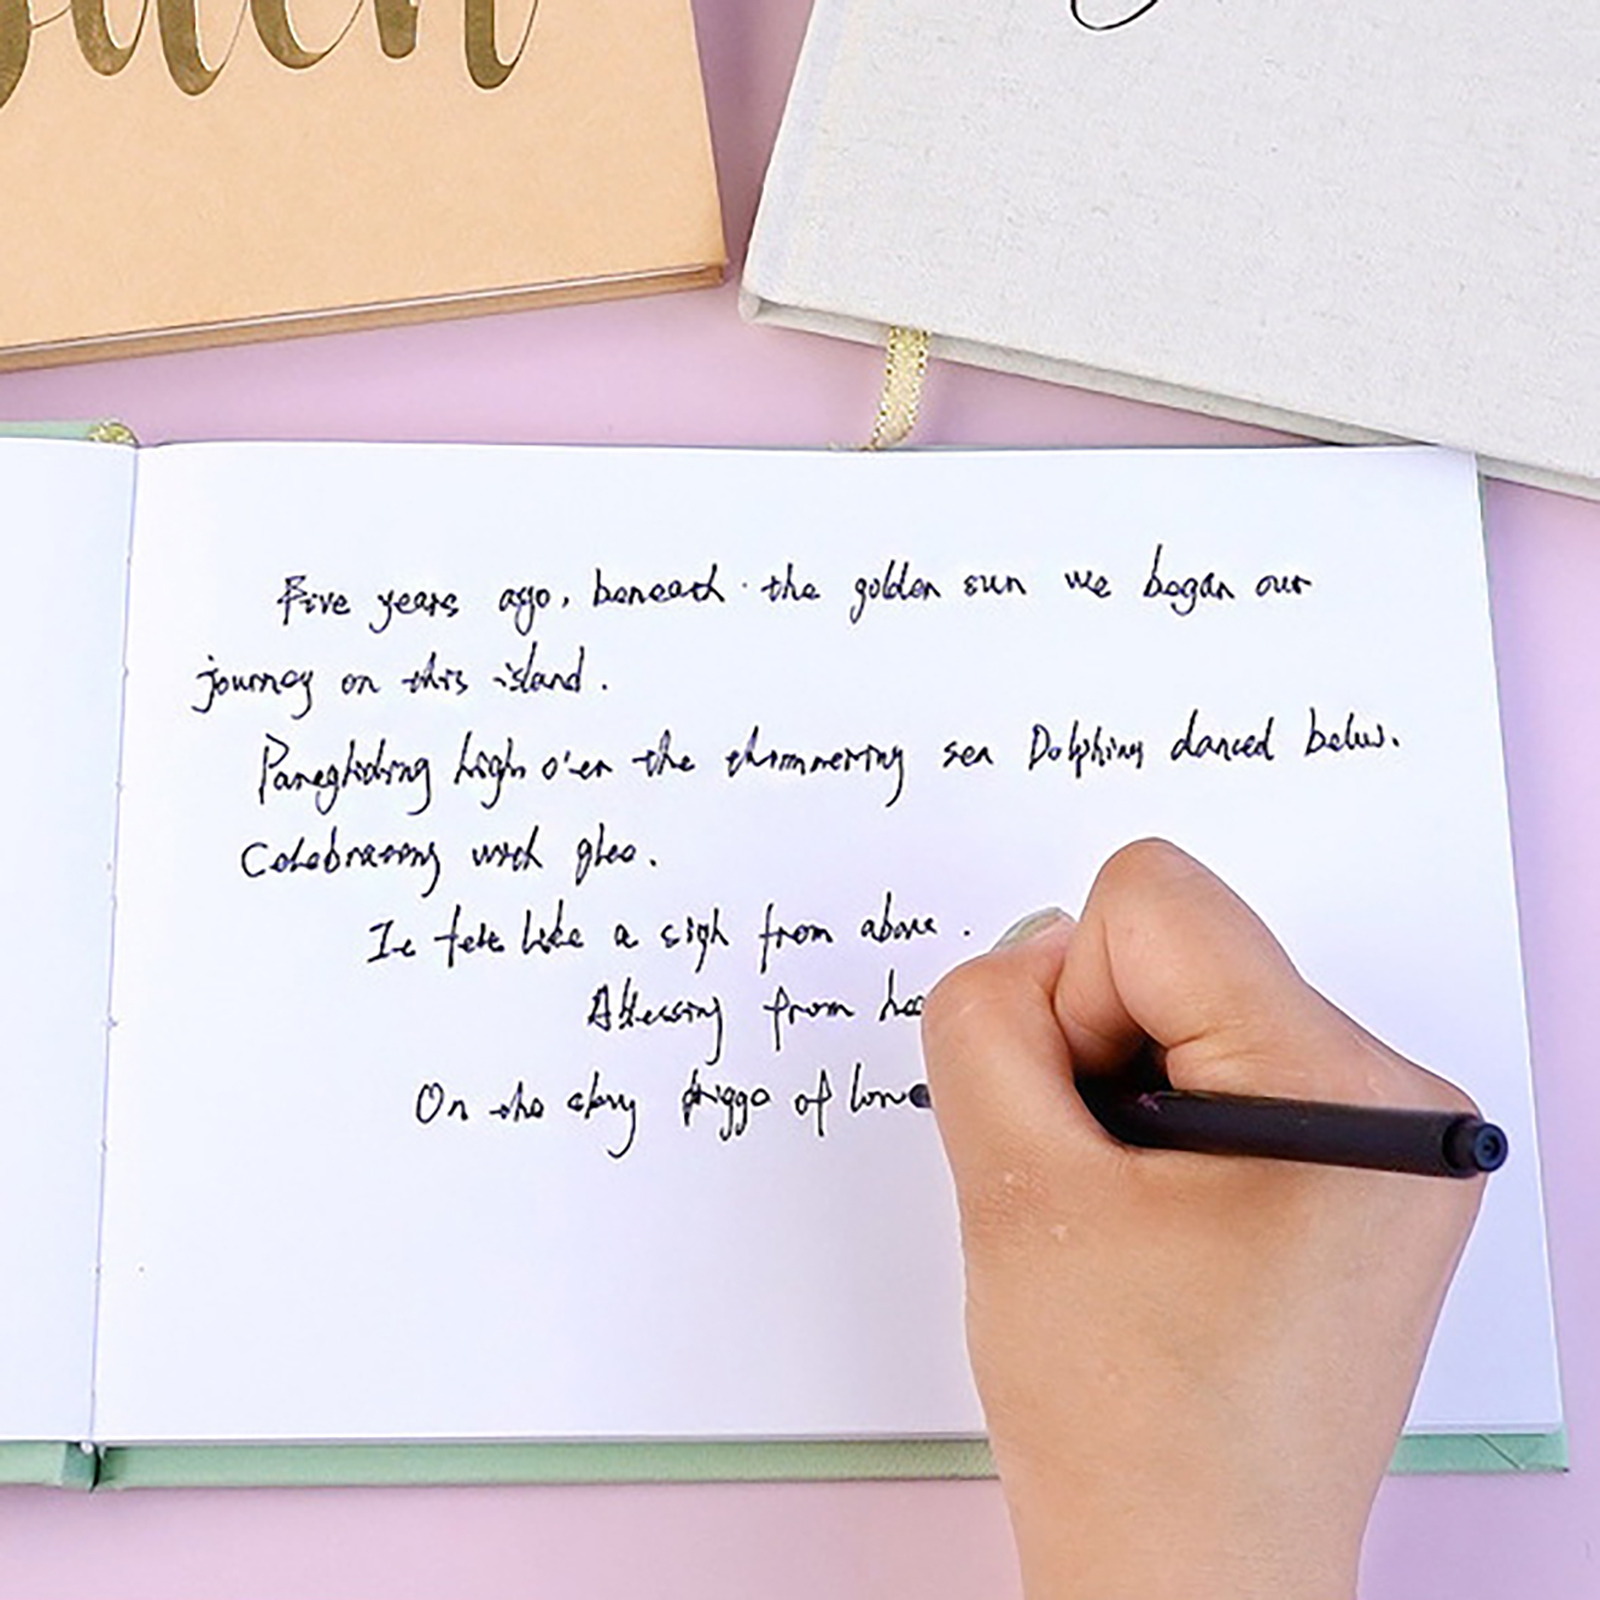 Five years ago, beneath the golden sun we began our
journey on this island.
Paragliding high o'er the shimmering sea Dolphins danced below.
Celebrating with glee.
It felt like a sigh from above.
A blessing from
On the of love